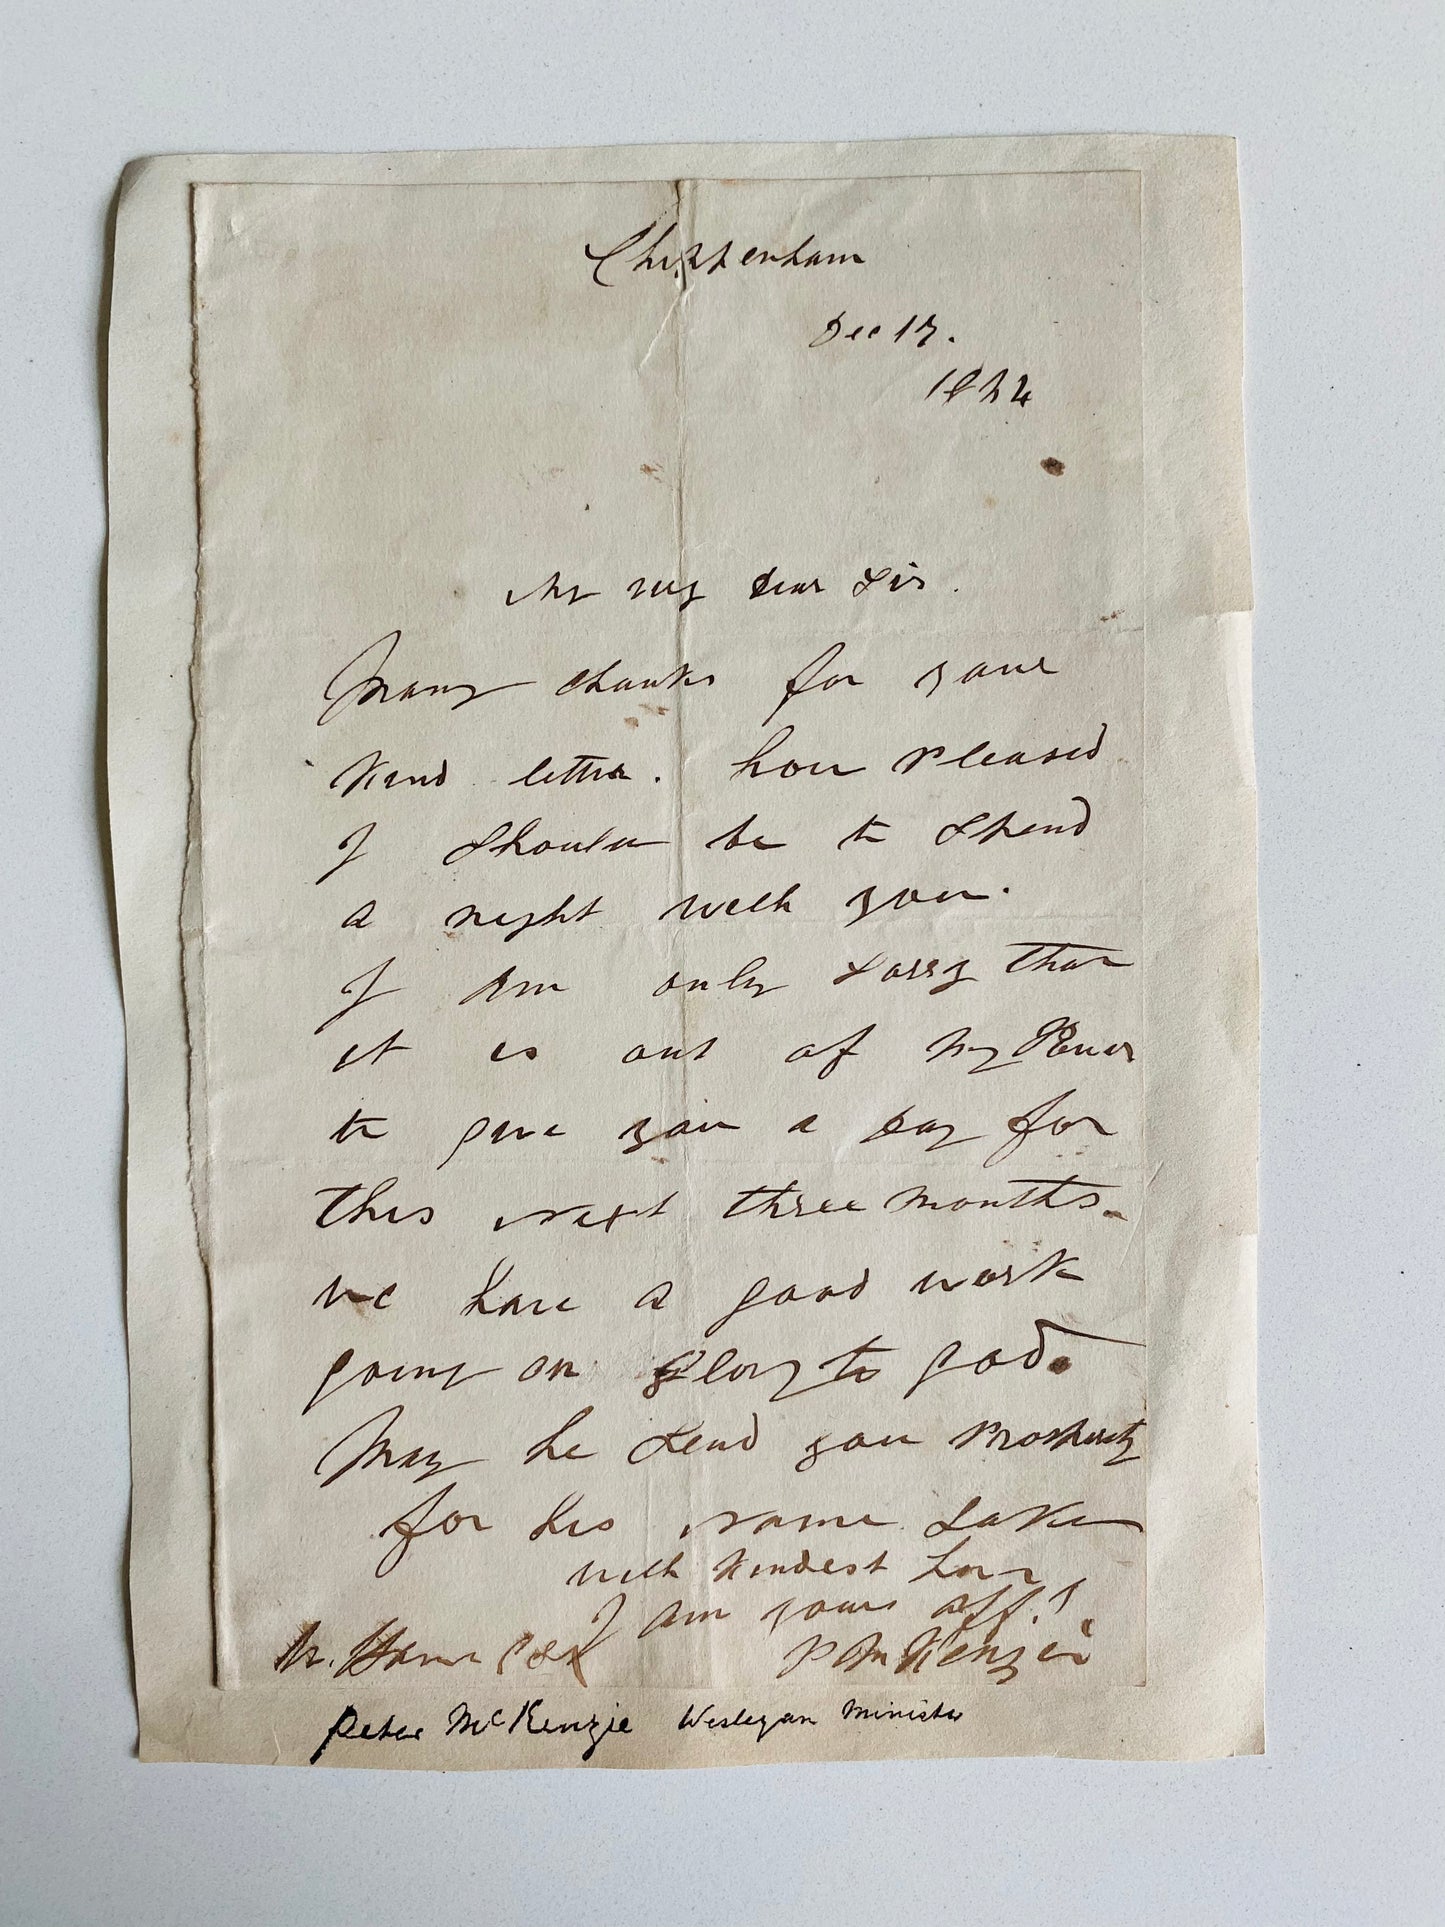 Chippenham
Dec 17.
My very dear Sir.
Many thanks for your
kind letter. how pleased
I should be to spend
a night with you.
I am only sorry that
it is out of my Power
to give you a day for
this next three months.
we have a good work
going on glory to god.
May he send you prosperity
for his name sake
with kindest love
I am yours aff.
P McKenzie
Peter McKenzie Wesleyan Minister